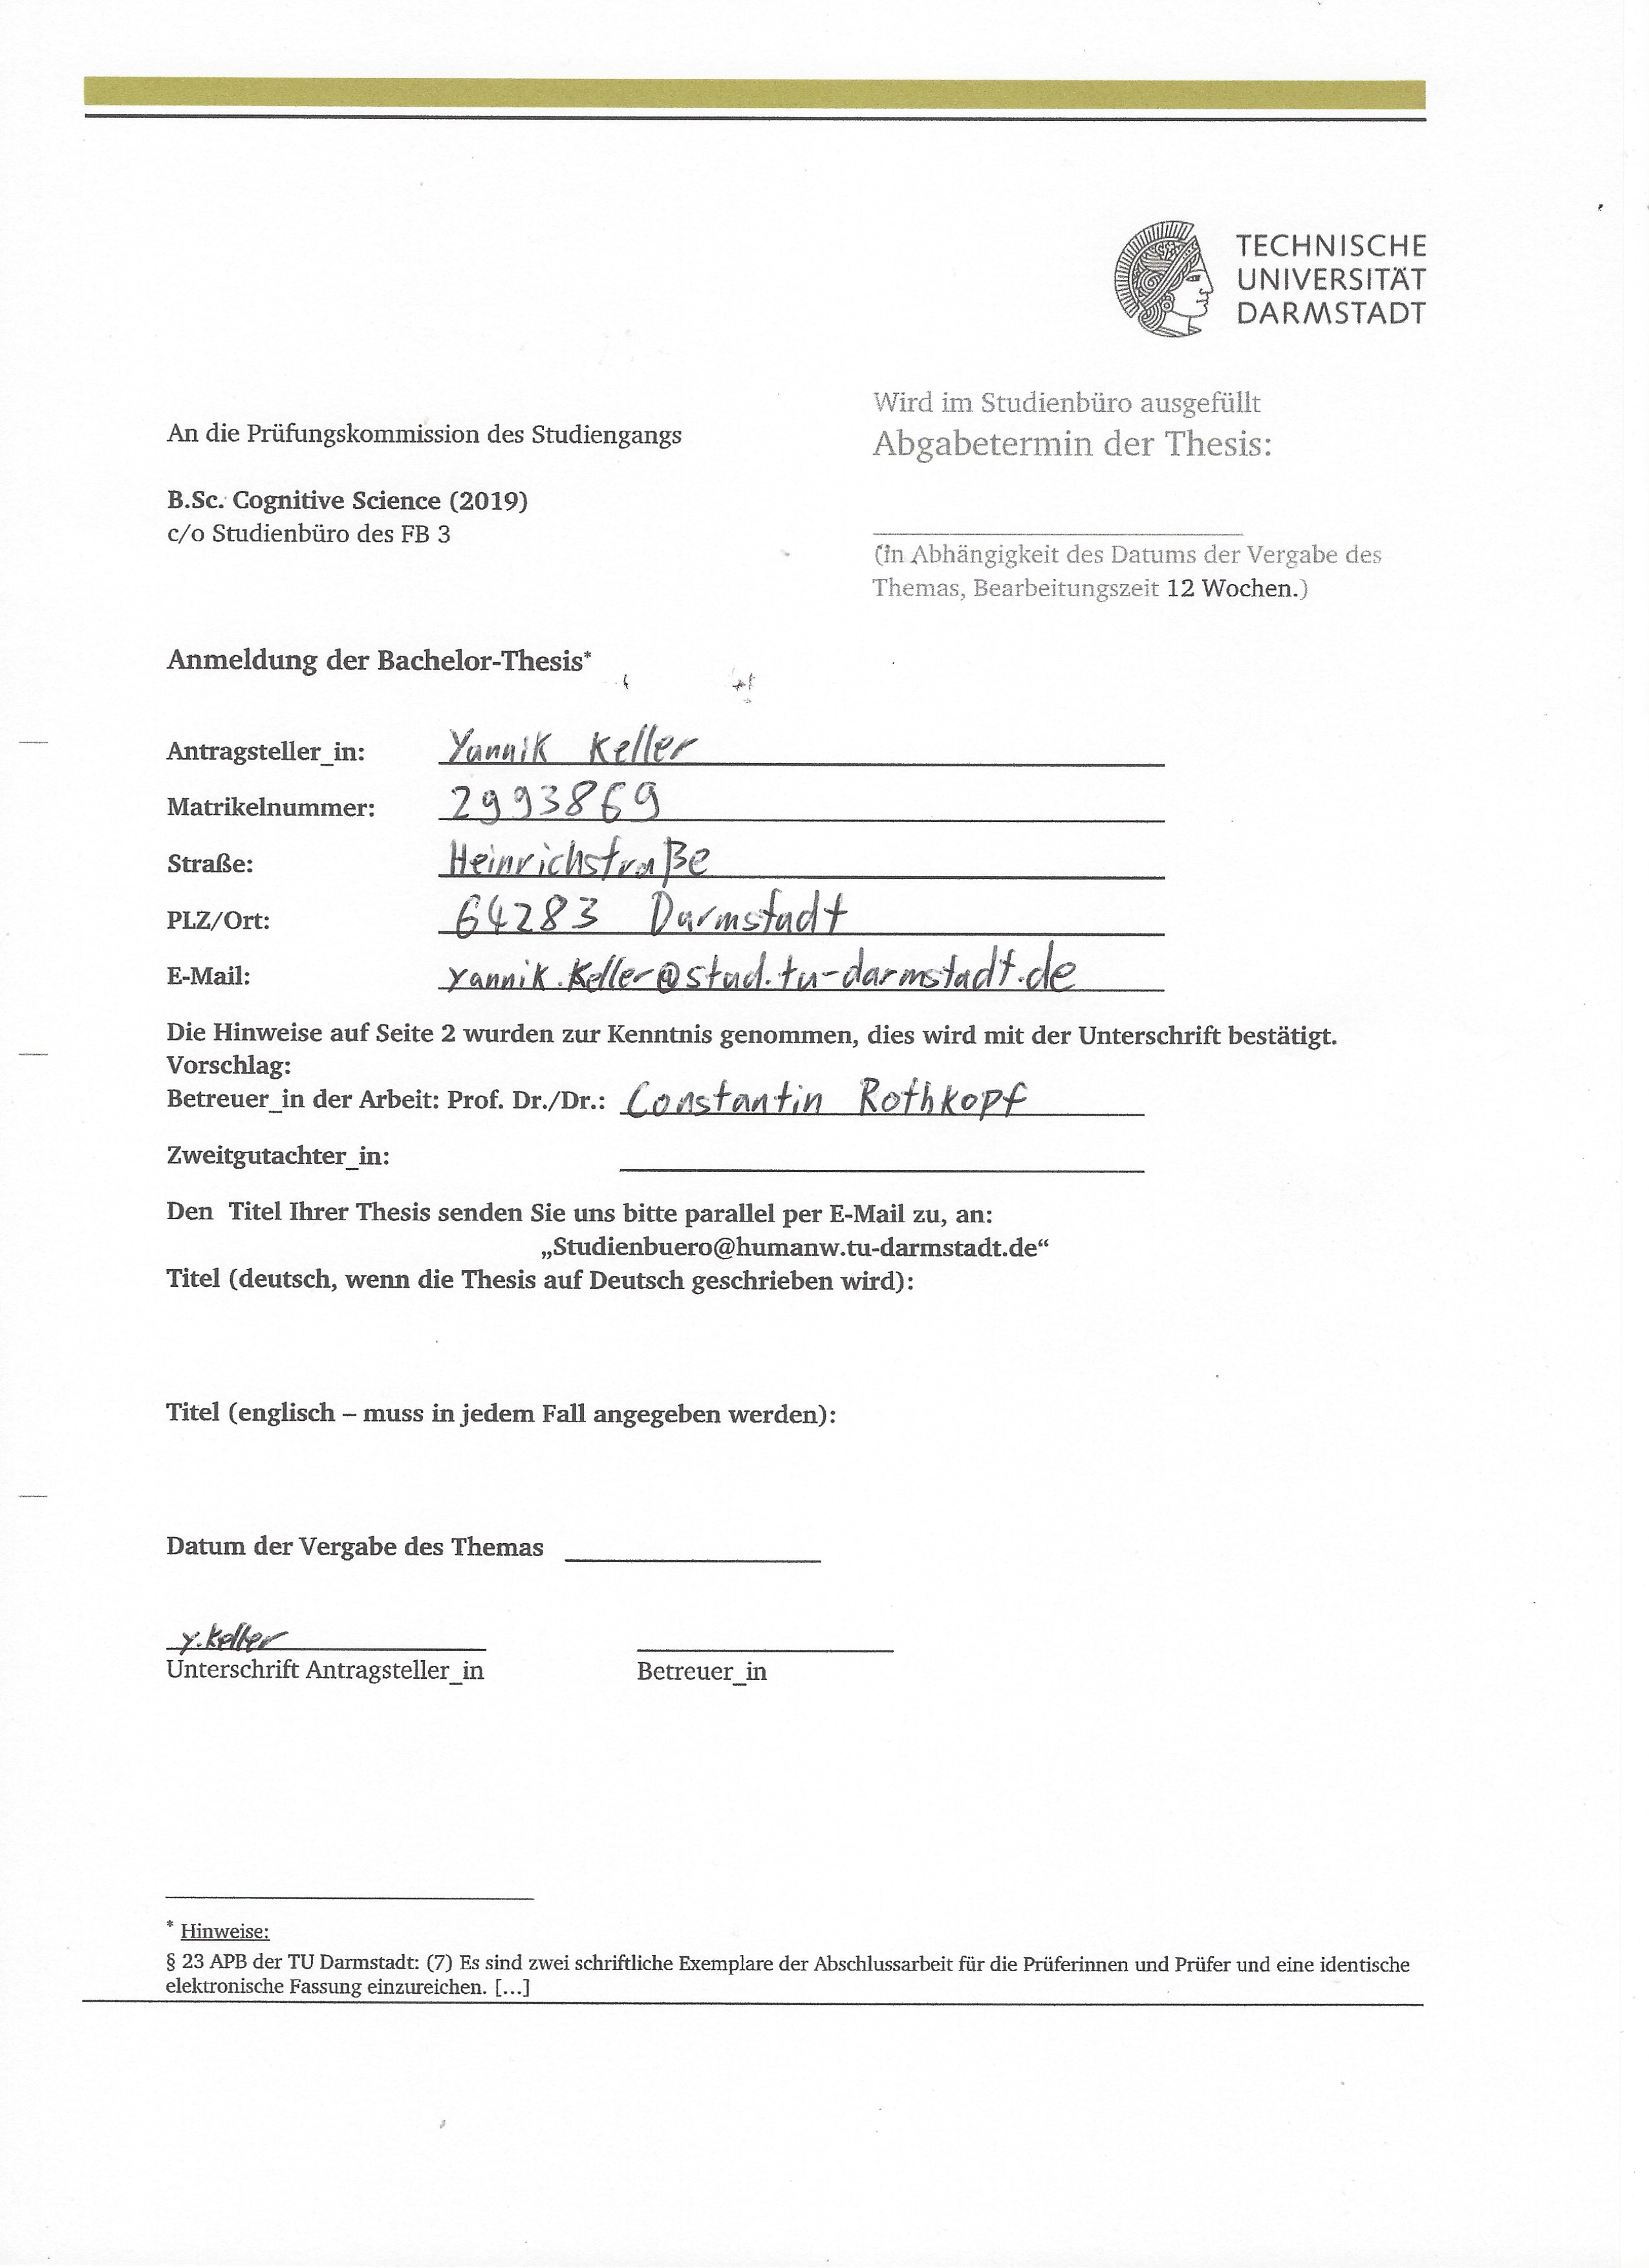 TECHNISCHE
UNIVERSITÄT
DARMSTADT
Wird im Studienbüro ausgefüllt
Abgabetermin der Thesis:
(In Abhängigkeit des Datums der Vergabe des
Themas, Bearbeitungszeit 12 Wochen.)
An die Prüfungskommission des Studiengangs
B.Sc. Cognitive Science (2019)
c/o Studienbüro des FB 3
Anmeldung der Bachelor-Thesis*
Antragsteller_in: Yannik Keller
Matrikelnummer: 2993869
Straße: Heinrichstraße
PLZ/Ort: 64283 Darmstadt
E-Mail: yannik.keller@stud.tu-darmstadt.de
Die Hinweise auf Seite 2 wurden zur Kenntnis genommen, dies wird mit der Unterschrift bestätigt.
Vorschlag:
Betreuer_in der Arbeit: Prof. Dr./Dr.: Constantin Rothkopf
Zweitgutachter_in:
Den Titel Ihrer Thesis senden Sie uns bitte parallel per E-Mail zu, an:
„Studienbuero@humanw.tu-darmstadt.de“
Titel (deutsch, wenn die Thesis auf Deutsch geschrieben wird):
Titel (englisch – muss in jedem Fall angegeben werden):
Datum der Vergabe des Themas
Y. Keller
Unterschrift Antragsteller_in Betreuer_in
* Hinweise:
§ 23 APB der TU Darmstadt: (7) Es sind zwei schriftliche Exemplare der Abschlussarbeit für die Prüferinnen und Prüfer und eine identische
elektronische Fassung einzureichen. [...]